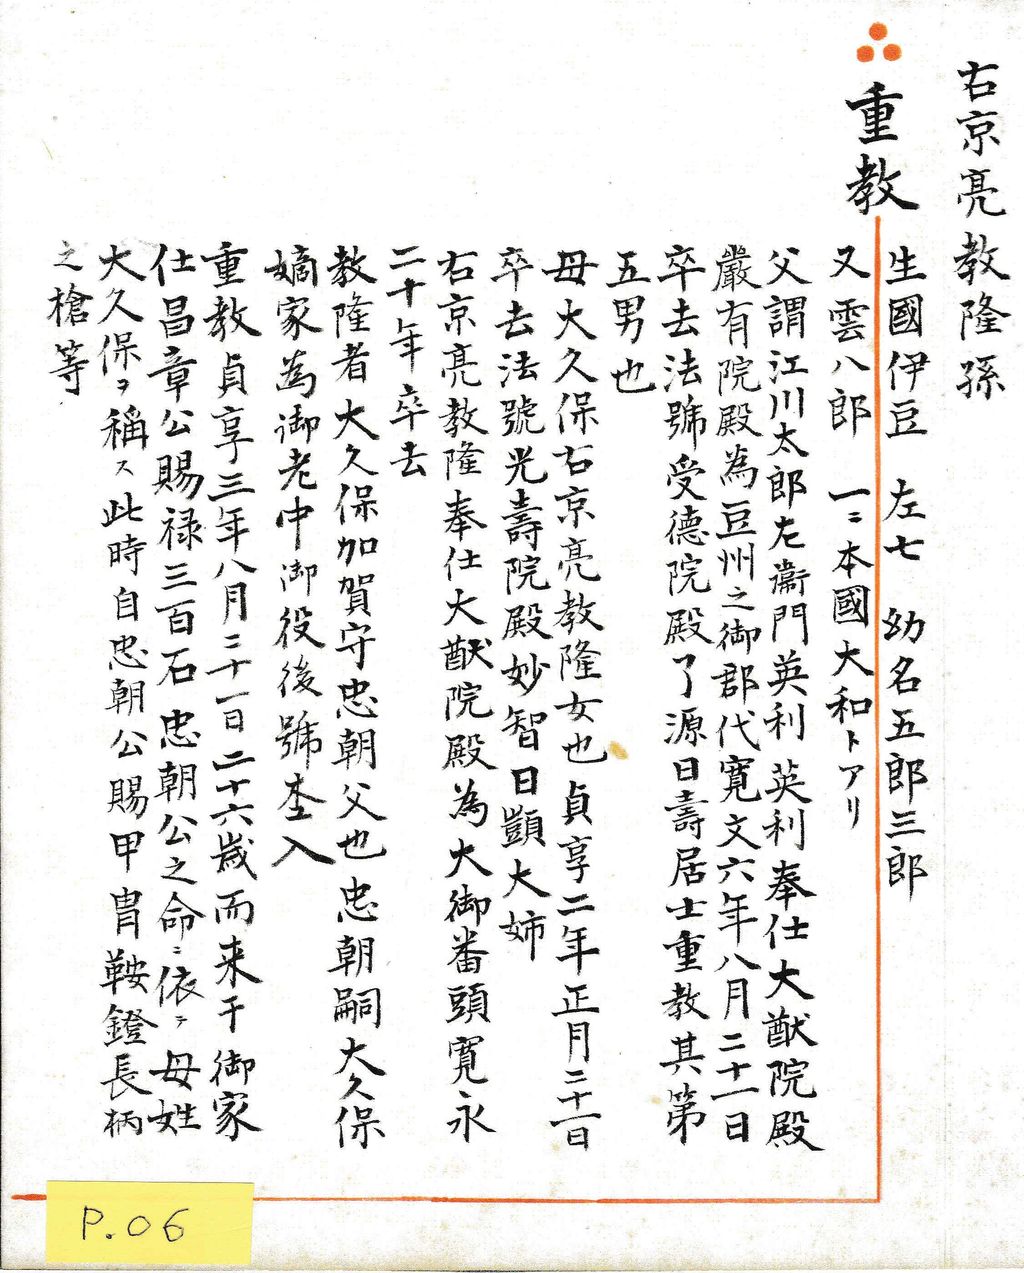 右京亮教隆孫
重教
生國伊豆 左七 幼名五郎三郎
又雲八郎 一ニ本國大和トアリ
父謂江川太郎左衞門英利英利奉仕大猷院殿
嚴有院殿為豆州之御郡代寛文六年八月二十一日
卒去法號受德院殿了源日壽居士重教其第
五男也
母大久保右京亮教隆女也貞享二年正月二十一日
卒去法號光壽院殿妙智日顗大姉
右京亮教隆奉仕大猷院殿為大御番頭寛永
二十年卒去
教隆者大久保加賀守忠朝父也忠朝嗣大久保
嫡家為御老中御役後號杢入
重教貞享三年八月二十一日二十六歳而来于御家
仕昌章公賜禄三百石忠朝公之命ニ依テ母姓
大久保ヲ稱ス此時自忠朝公賜甲冑鞍鐙長柄
之槍等
P.06